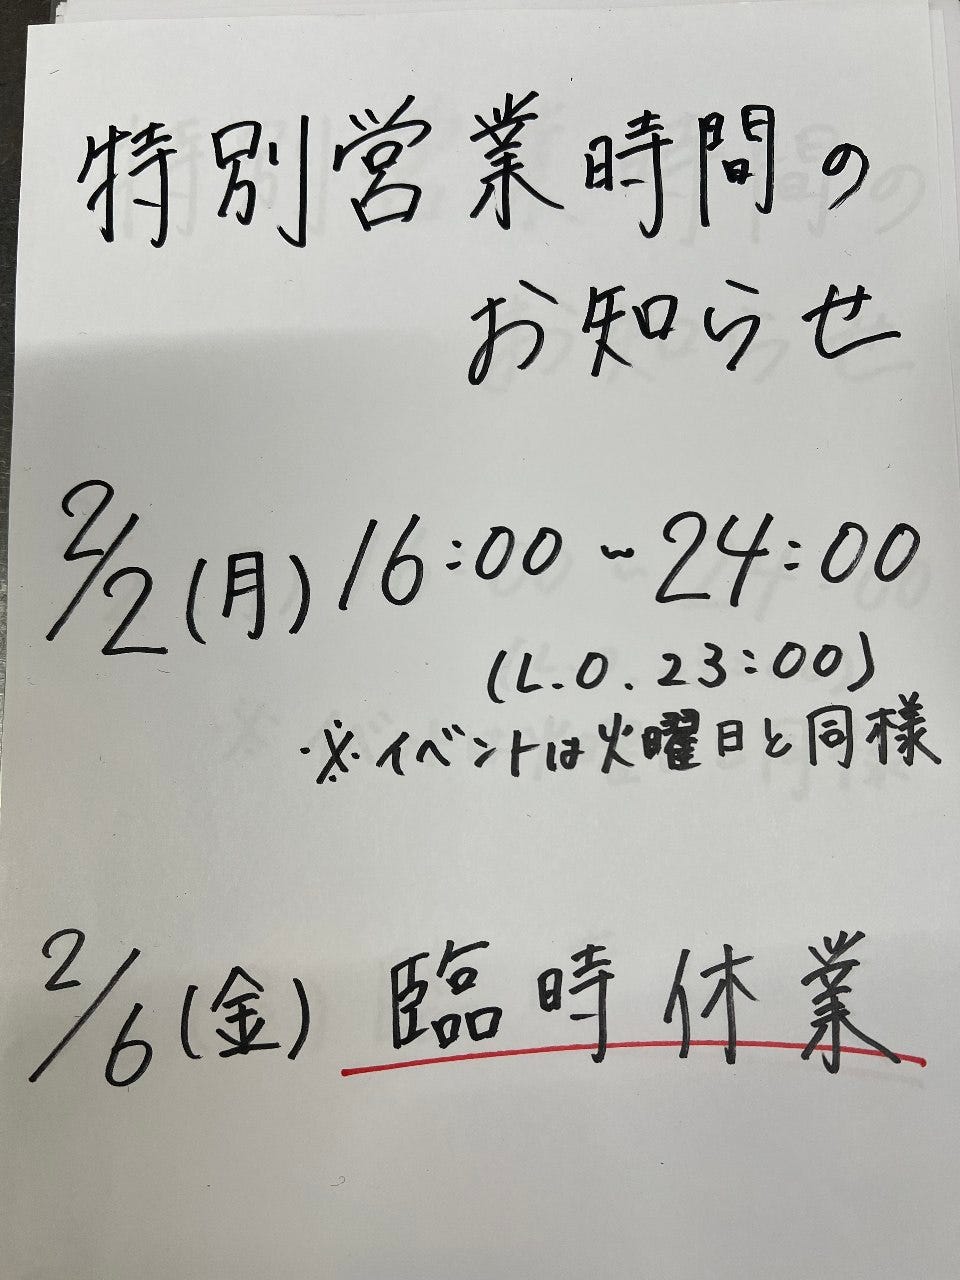 特別営業時間の
お知らせ
2/2(月) 16:00～24:00
(L.O. 23:00)
※イベントは火曜日と同様
2/6(金) 臨時休業